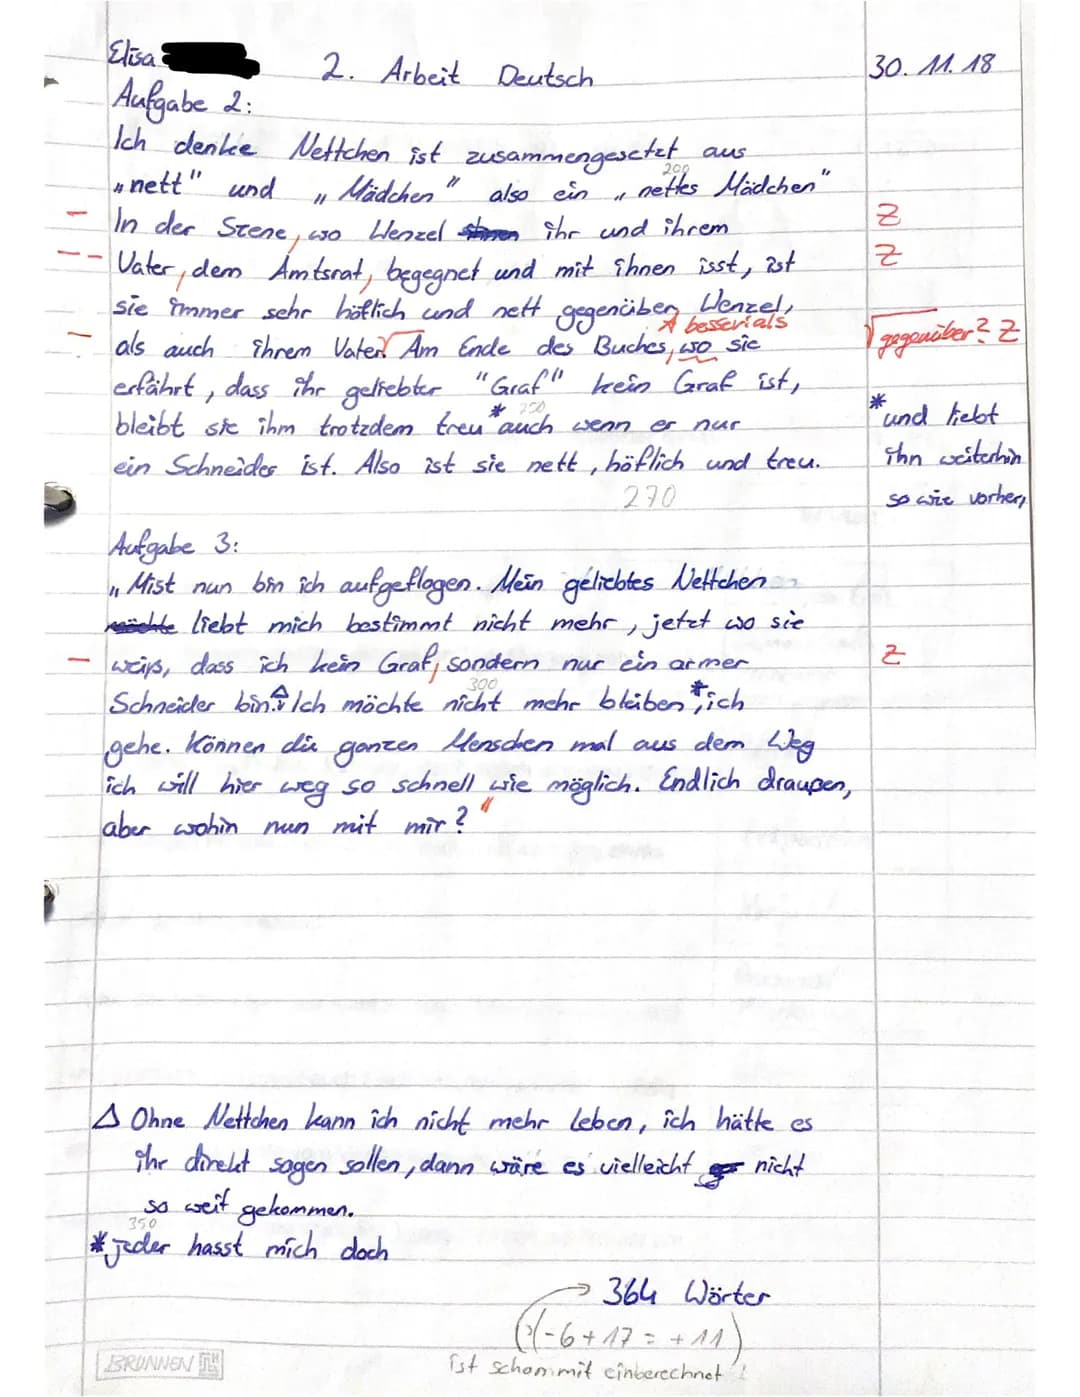 Elisa
2. Arbeit Deutsch
30. 11. 18
Aufgabe 2:
Ich denke Nettchen ist zusammengesetzt aus
200
„nett" und „Mädchen" also ein „nettes Mädchen"
In der Szene, wo Wenzel ihr und ihrem Z
Vater, dem Amtsrat, begegnet und mit ihnen isst, ist Z
sie immer sehr höflich und nett gegenüber Wenzel,
besser: als
als auch ihrem Vater. Am Ende des Buches, wo sie √gegenüber? Z
erfährt, dass ihr geliebter "Graf" kein Graf ist,
* 250
bleibt sie ihm trotzdem treu auch wenn er nur
* und liebt
ein Schneider ist. Also ist sie nett, höflich und treu.
ihn weiterhin
so wie vorher,
270
Aufgabe 3:
„Mist nun bin ich aufgeflogen. Mein geliebtes Nettchen
möchte liebt mich bestimmt nicht mehr, jetzt wo sie
weiß, dass ich kein Graf, sondern nur ein armer Z
300
Schneider bin.∆ Ich möchte nicht mehr bleiben*, ich
gehe. Können die ganzen Menschen mal aus dem Weg
ich will hier weg so schnell wie möglich. Endlich draußen,
aber wohin nun mit mir?"
∆ Ohne Nettchen kann ich nicht mehr leben, ich hätte es
ihr direkt sagen sollen, dann wäre es vielleicht nicht
so weit gekommen.
350
* jeder hasst mich doch
→ 364 Wörter
(-6+17 = +11)
ist schon mit einberechnet!
BRUNNEN